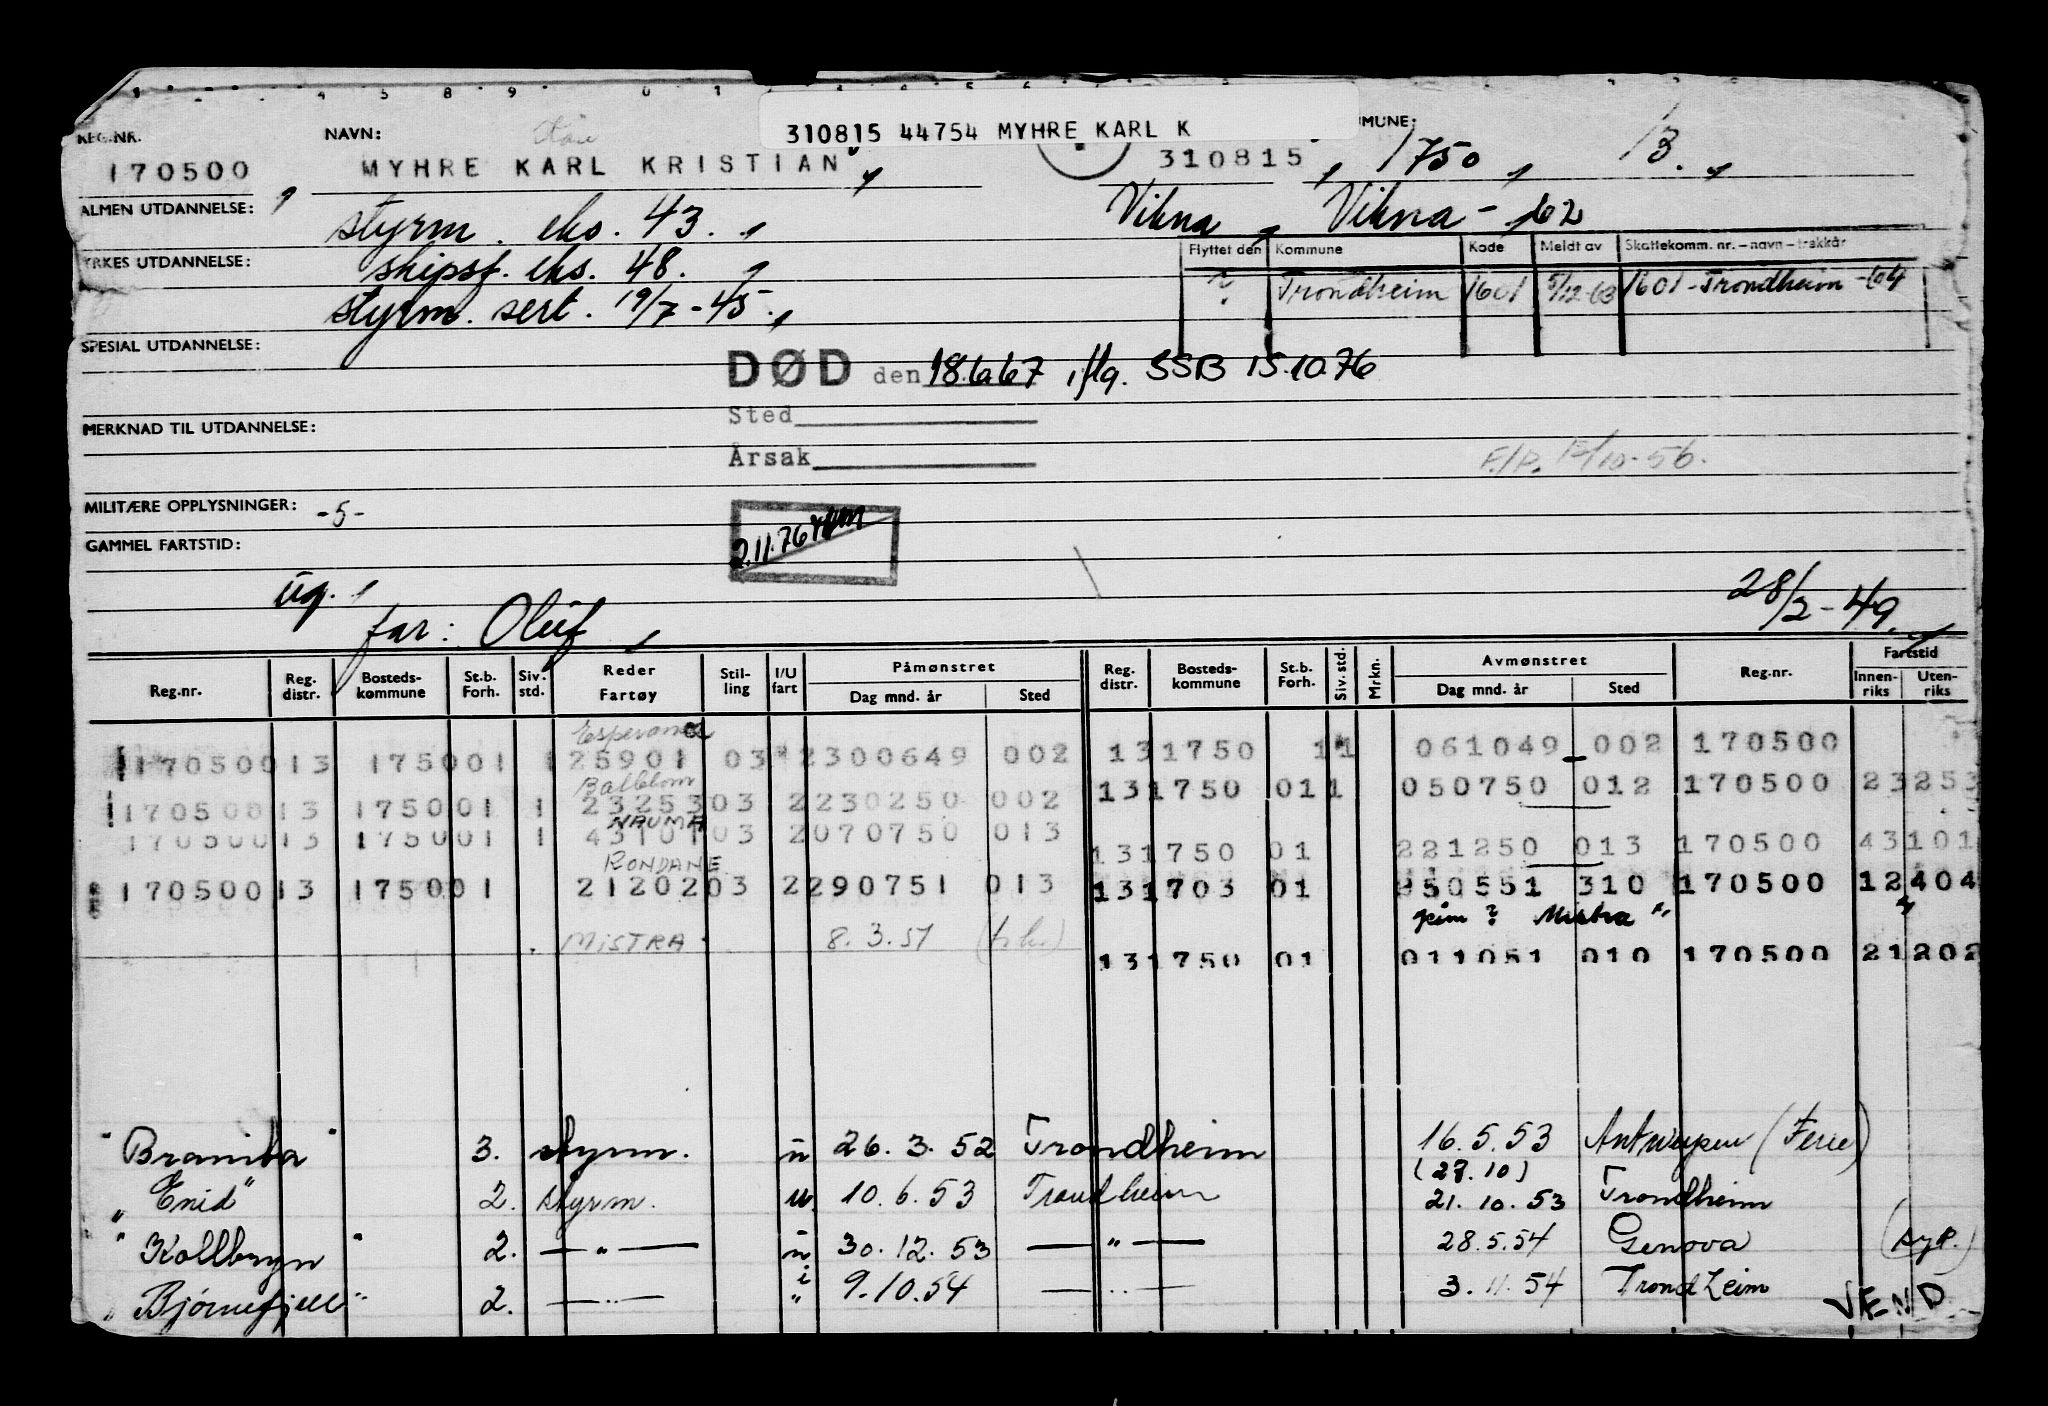 310815 44754 MYHRE KARL K
REG.NR. NAVN: MUNE:
170500 MYHRE KARL KRISTIAN 310815 1750 13.
ALMEN UTDANNELSE: styrm. eks. 43. Vikna Vikna - 62
Flyttet den Kommune Kode Meldt av Skattekomm. nr. – navn – trekkår
YRKES UTDANNELSE: skipsf. eks. 48.
? Trondheim 1601 5/12-63 1601 - Trondheim - 64
styrm. sert. 19/7-45.
SPESIAL UTDANNELSE:
DØD den 18.6.67 iflg. SSB 15.10.76
Sted
MERKNAD TIL UTDANNELSE:
Årsak
MILITÆRE OPPLYSNINGER: -5-
2.11.76
GAMMEL FARTSTID:
ug.
far: Oluf
28/2-49.
Reg.nr. Reg. distr. Bosteds-kommune St.b. Forh. Siv. std. Reder Fartøy Stil-ling I/U fart Påmønstret Dag mnd. år Sted Reg. distr. Bosteds-kommune St.b. Forh. Siv. std. Mrkn. Avmønstret Dag mnd. år Sted Reg.nr. Fartstid Innen-riks Uten-riks
Esperance
170500 13 1750 01 1 25901 03 2 300649 002 13 1750 1 1 061049 002 170500
Ballblom
170500 13 1750 01 1 23253 03 2 230250 002 13 1750 01 1 050750 012 170500 23253
NAUMA
170500 13 1750 01 1 43101 03 2 070750 013 13 1750 01 221250 013 170500 43101
RONDANE
170500 13 1750 01 21202 03 2 290751 013 13 1703 01 250551 310 170500 12404
? Mistra
MISTRA 8.3.51
13 1750 01 011051 010 170500 21202
"Bramiba" 3. styrm. u 26.3.52 Trondheim 16.5.53 Antwerpen (Ferie)
(27.10)
"Enid" 2. styrm. u. 10.6.53 Trondheim 21.10.53 Trondheim
"Kollbryn" 2. — " — u 30.12.53 — " — 28.5.54 Genova (syk.)
"Bjørnefjell" 2. — " — i 9.10.54 — " — 3.11.54 Trondheim
VEND